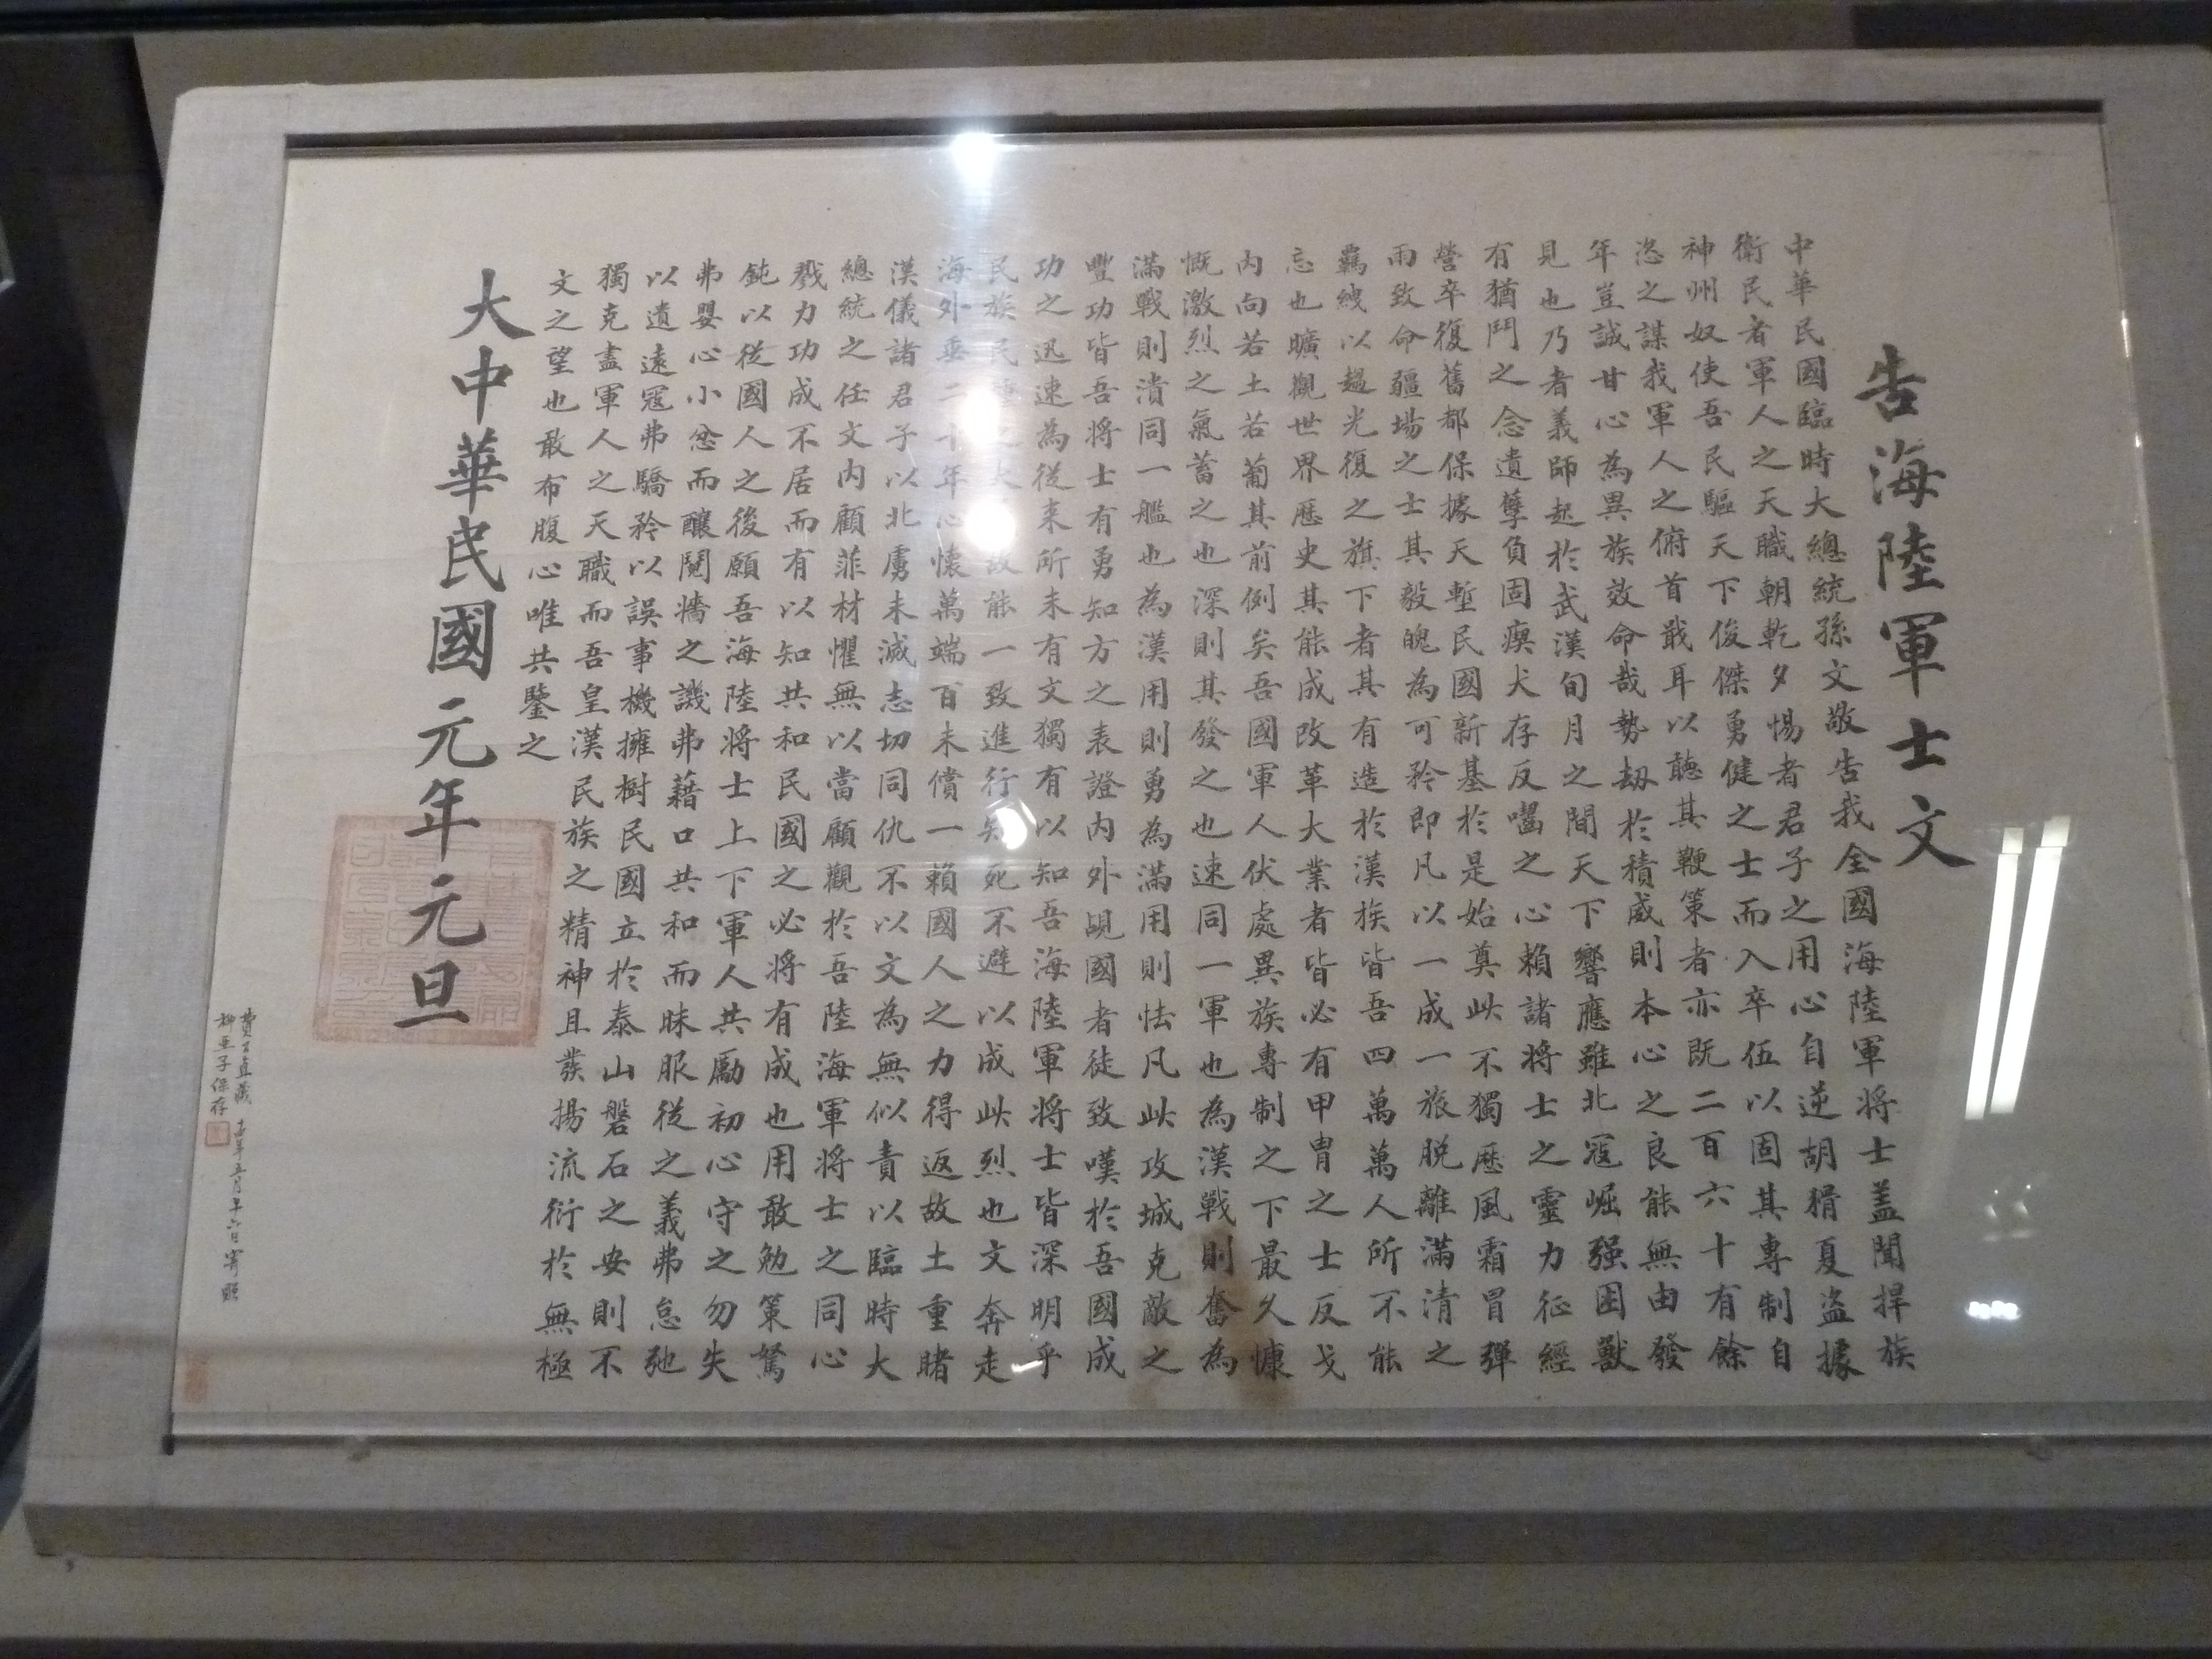 告海陸軍士文
中華民國臨時大總統孫文敬告我全國海陸軍將士盖聞捍族
衛民者軍人之天職朝乾夕惕者君子之用心自逆胡猾夏盜據
神州奴使吾民驅天下俊傑勇健之士而入卒伍以固其專制自
恣之謀我軍人之俯首戢耳以聽其鞭策者亦既二百六十有餘
年豈誠甘心為異族效命哉勢劫於積威則本心之良能無由發
見也乃者義師起於武漢旬月之間天下響應雖北寇崛强困獸
有猶鬥之念遺孽負固瘈犬存反噬之心賴諸將士之靈力征經
營卒復舊都保據天塹民國新基於是始奠此不獨歷風霜冒彈
雨致命疆場之士其毅魄為可矜即凡以一成一旅脱離滿清之
羈絏以趨光復之旗下者其有造於漢族皆吾四萬萬人所不能
忘也曠觀世界歷史其能成改革大業者皆必有甲胄之士反戈
内向若土若葡其前例矣吾國軍人伏處異族專制之下最久慷
慨激烈之氣蓄之也深則其發之也速同一軍也為漢戰則奮為
滿戰則潰同一艦也為漢用則勇為滿用則怯凡此攻城克敵之
豐功皆吾將士有勇知方之表證内外覘國者徒致嘆於吾國成
功之迅速為從来所未有文獨有以知吾海陸軍將士皆深明乎
民族民權之大故能一致進行知死不避以成此烈也文奔走
海外垂二十年心懷萬端百未償一賴國人之力得返故土重睹
漢儀諸君子以北虜未滅志切同仇不以文為無似責以臨時大
總統之任文内顧菲材懼無以當顧觀於吾陸海軍將士之同心
戮力功成不居而有以知共和民國之必將有成也用敢勉策駑
鈍以從國人之後願吾海陸將士上下軍人共勵初心守之勿失
弗嬰心小忿而釀鬩牆之譏弗藉口共和而昧服從之義弗怠弛
以遺遠寇弗驕矜以誤事機擁樹民國立於泰山磐石之安則不
獨克盡軍人之天職而吾皇漢民族之精神且發揚流衍於無極
文之望也敢布腹心唯共鑒之
大中華民國元年元旦
費公直藏
柳亞子保存